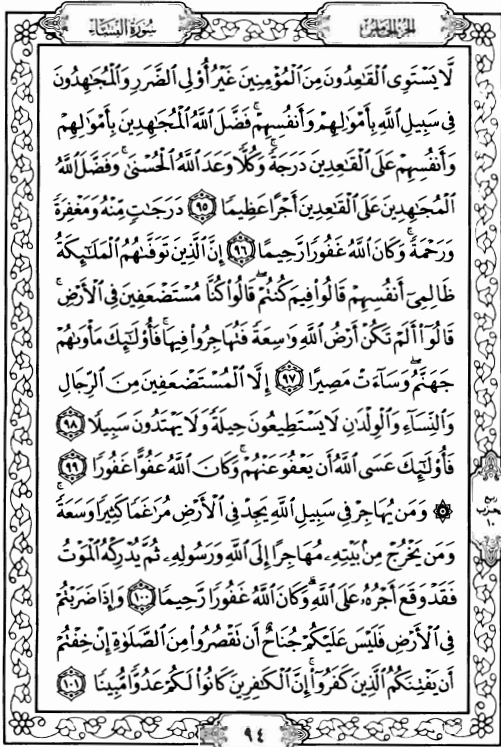 سُورَةُ النِّسَاءِ
الجُزءُ الخَامِسُ
لَّا يَسْتَوِى الْقَٰعِدُونَ مِنَ الْمُؤْمِنِينَ غَيْرُ أُوْلِى الضَّرَرِ وَالْمُجَٰهِدُونَ
فِى سَبِيلِ اللَّهِ بِأَمْوَٰلِهِمْ وَأَنفُسِهِمْ ۚ فَضَّلَ اللَّهُ الْمُجَٰهِدِينَ بِأَمْوَٰلِهِمْ
وَأَنفُسِهِمْ عَلَى الْقَٰعِدِينَ دَرَجَةً ۚ وَكُلًّا وَعَدَ اللَّهُ الْحُسْنَىٰ ۚ وَفَضَّلَ اللَّهُ
الْمُجَٰهِدِينَ عَلَى الْقَٰعِدِينَ أَجْرًا عَظِيمًا ٩٥ دَرَجَٰتٍ مِّنْهُ وَمَغْفِرَةً
وَرَحْمَةً ۚ وَكَانَ اللَّهُ غَفُورًا رَّحِيمًا ٩٦ إِنَّ الَّذِينَ تَوَفَّىٰهُمُ الْمَلَٰٓئِكَةُ
ظَالِمِىٓ أَنفُسِهِمْ قَالُوا۟ فِيمَ كُنتُمْ ۖ قَالُوا۟ كُنَّا مُسْتَضْعَفِينَ فِى الْأَرْضِ ۚ
قَالُوٓا۟ أَلَمْ تَكُنْ أَرْضُ اللَّهِ وَٰسِعَةً فَتُهَاجِرُوا۟ فِيهَا ۚ فَأُو۟لَٰٓئِكَ مَأْوَىٰهُمْ
جَهَنَّمُ ۖ وَسَآءَتْ مَصِيرًا ٩٧ إِلَّا الْمُسْتَضْعَفِينَ مِنَ الرِّجَالِ
وَالنِّسَآءِ وَالْوِلْدَٰنِ لَا يَسْتَطِيعُونَ حِيلَةً وَلَا يَهْتَدُونَ سَبِيلًا ٩٨
فَأُو۟لَٰٓئِكَ عَسَى اللَّهُ أَن يَعْفُوَ عَنْهُمْ ۚ وَكَانَ اللَّهُ عَفُوًّا غَفُورًا ٩٩
۞ وَمَن يُهَاجِرْ فِى سَبِيلِ اللَّهِ يَجِدْ فِى الْأَرْضِ مُرَٰغَمًا كَثِيرًا وَسَعَةً ۚ
وَمَن يَخْرُجْ مِنۢ بَيْتِهِۦ مُهَاجِرًا إِلَى اللَّهِ وَرَسُولِهِۦ ثُمَّ يُدْرِكْهُ الْمَوْتُ
فَقَدْ وَقَعَ أَجْرُهُۥ عَلَى اللَّهِ ۗ وَكَانَ اللَّهُ غَفُورًا رَّحِيمًا ١٠٠ وَإِذَا ضَرَبْتُمْ
فِى الْأَرْضِ فَلَيْسَ عَلَيْكُمْ جُنَاحٌ أَن تَقْصُرُوا۟ مِنَ الصَّلَوٰةِ إِنْ خِفْتُمْ
أَن يَفْتِنَكُمُ الَّذِينَ كَفَرُوٓا۟ ۚ إِنَّ الْكَٰفِرِينَ كَانُوا۟ لَكُمْ عَدُوًّا مُّبِينًا ١٠١
ربع
حزب
١٠
٩٤